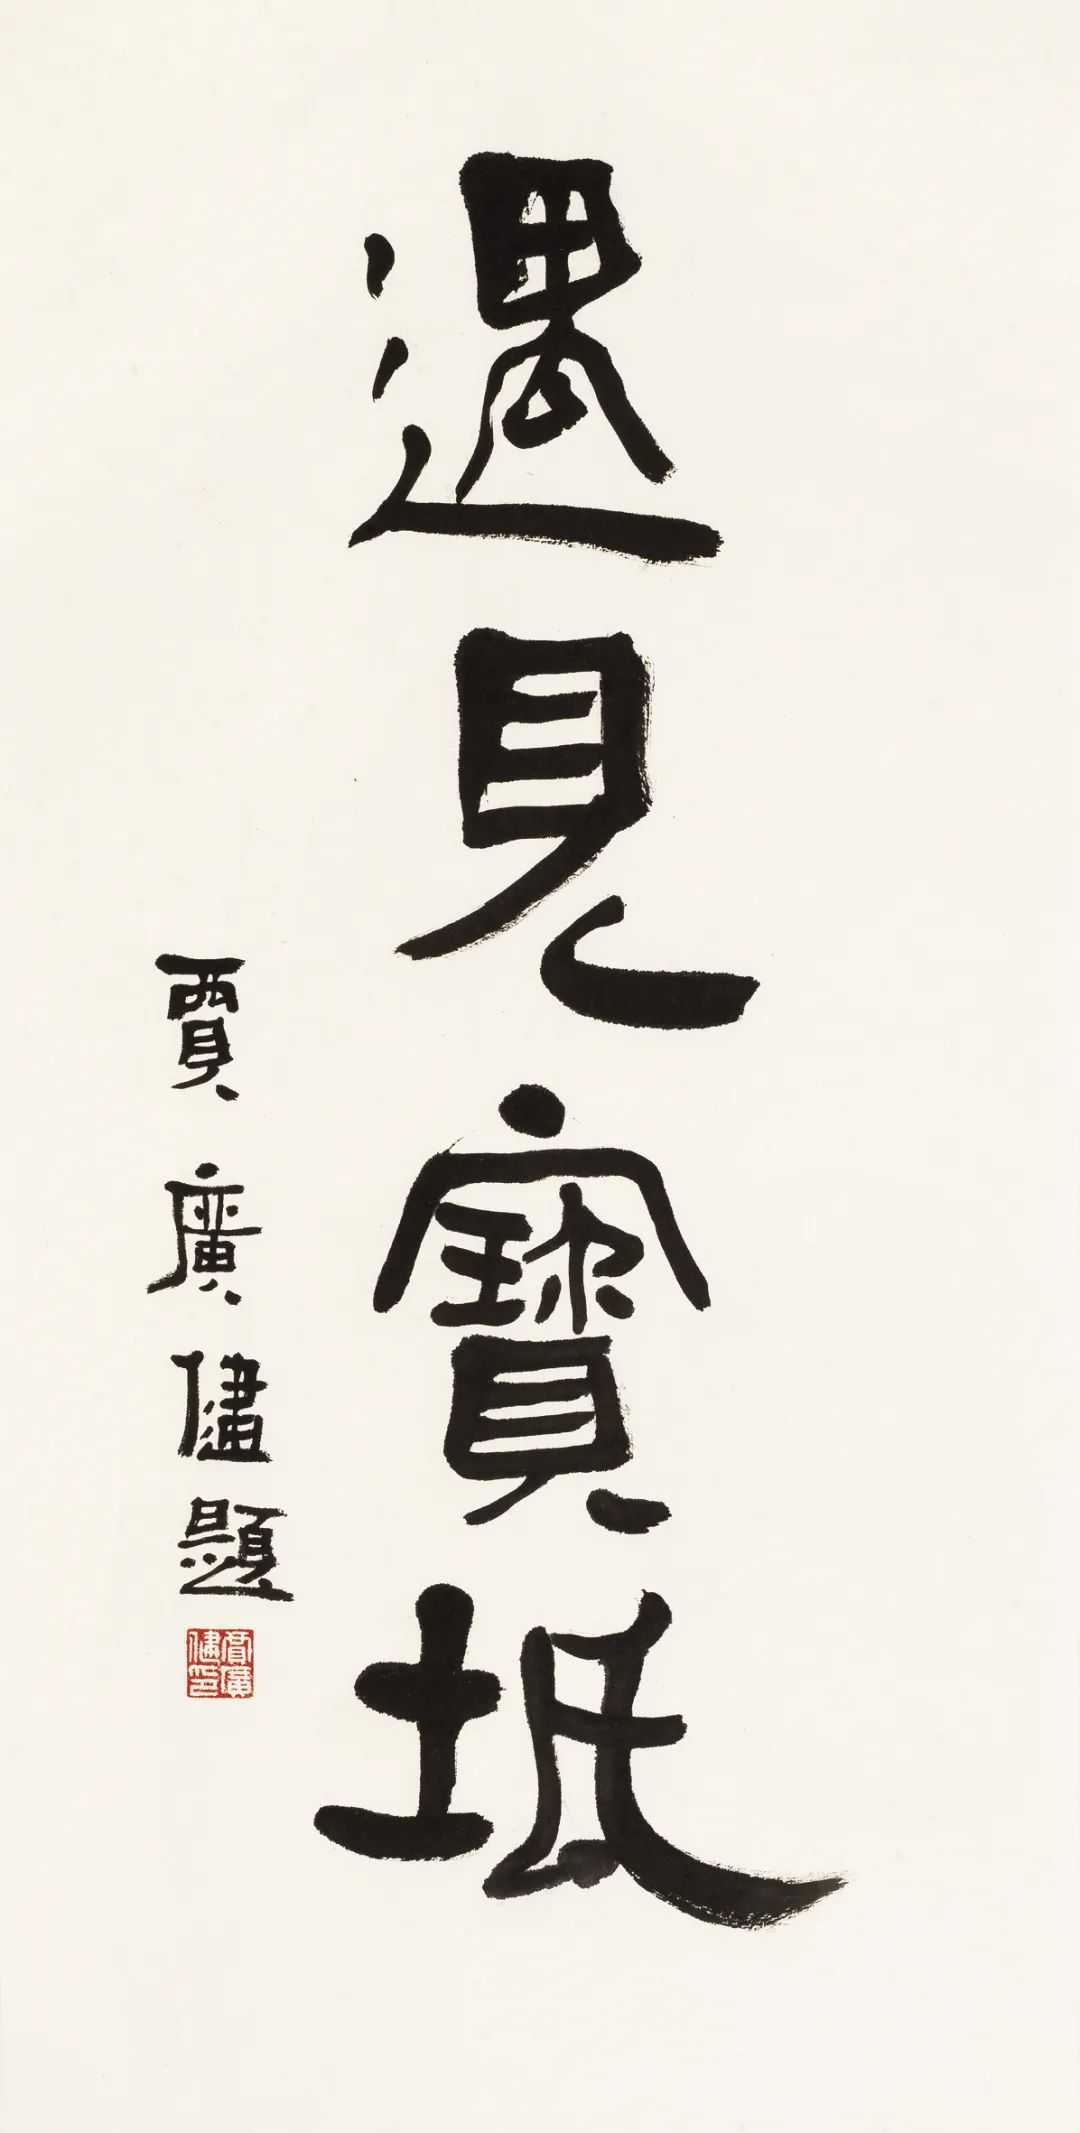 遇見寳坻
賈廣健題
賈廣健印